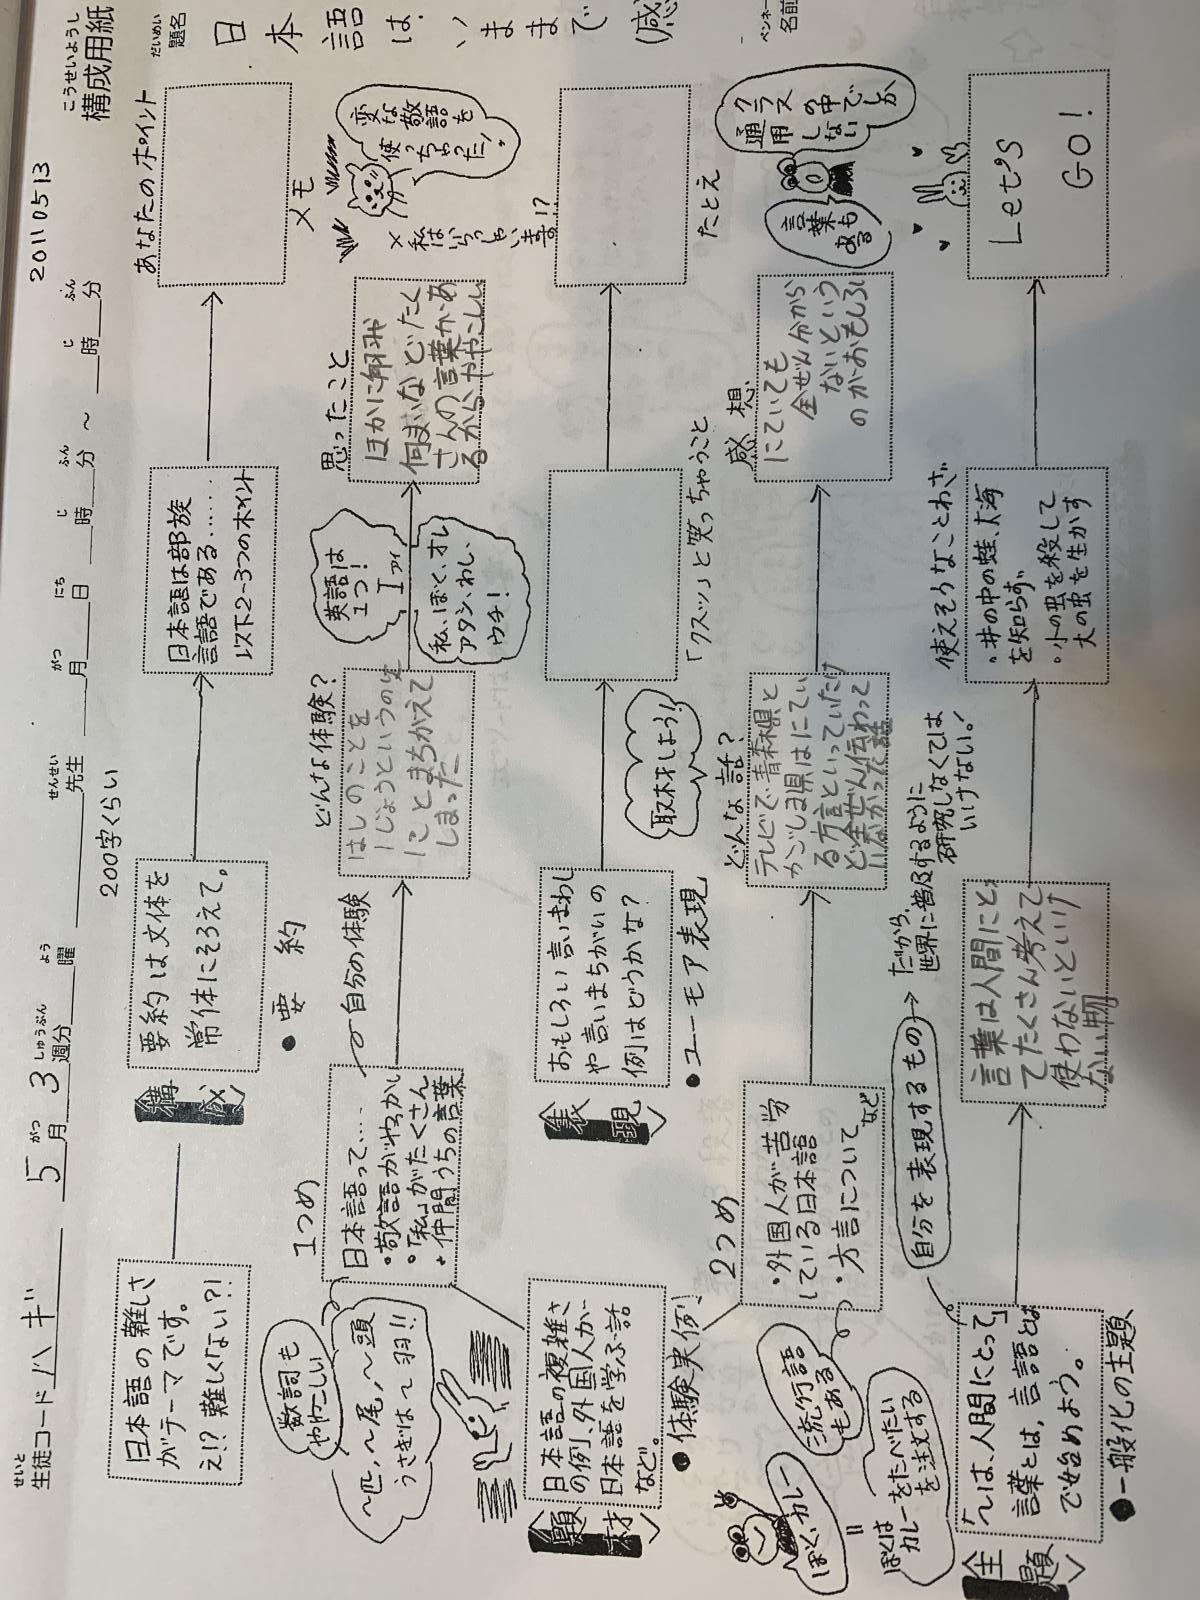 20110513
こうせいようし
構成用紙
せいと
生徒コード ハギ 5月3週分 曜 先生 月 日 時 分 ～ 時 分
がつ しゅうぶん よう せんせい がつ にち じ ふん じ ふん
だいめい
題名
日本語は、いままで(感
ペンネー
名前
200字くらい
あなたのポイント
日本語の難しさ
がテーマです。
え!?難しくない?!
<構成>
要約は文体を
常体にそろえて。
●要約
日本語は部族
言語である……
以下2~3つのポイント
メモ
1つめ
日本語って…
・敬語がむずかしい
・「私」がたくさん
・仲間うちの言葉
数詞も
ややこしい
～匹,～尾,～頭
うさぎは～羽!!
自分の体験
どんな体験?
はしのことを
ことまちがえて
しまった
英語は
1つ!
I
アイ
私、ぼく、オレ
アタシ、わし、
ウチ!
思ったこと
ほかに
何まいなどたく
さんの言葉があ
るからややこしい
変な敬語を
使っちゃった!
×私は
いらっしゃい
ます!?
<題材>
日本語の複雑さ
の例、外国人が
日本語を学ぶ話
など。
●体験実例
<表現>
おもしろい言いまわし
や言いまちがいの
例はどうかな?
●ユーモア表現
取材しよう!
「クスッ」と笑っちゃうこと
たとえ
2つめ
・外国人が苦労
している日本語
・方言について
など
流行語
もある
ぼく、カレー
=
ぼくは
カレーをたべたい
を注文する
どんな話?
テレビで青森県と
かごしま県はにてい
る方言といっていたけ
ど全ぜん伝わって
いなかった話
感想
にていても
全ぜん分から
ないという
のがおもしろい
クラス
の中でしか
通用しない
言葉も
ある
<主題>
「～は、人間にとって」
言葉とは,言語とは
で始めよう。
●一般化の主題
自分を表現するもの
だから、
世界に普及するように
研究しなくては
いけない!
言葉は人間にとっ
てたくさん考えて
使わないといけ
ない物
使えそうなことわざ
・井の中の蛙、大海
を知らず、
・小の虫を殺して
大の虫を生かす
Let's
GO!